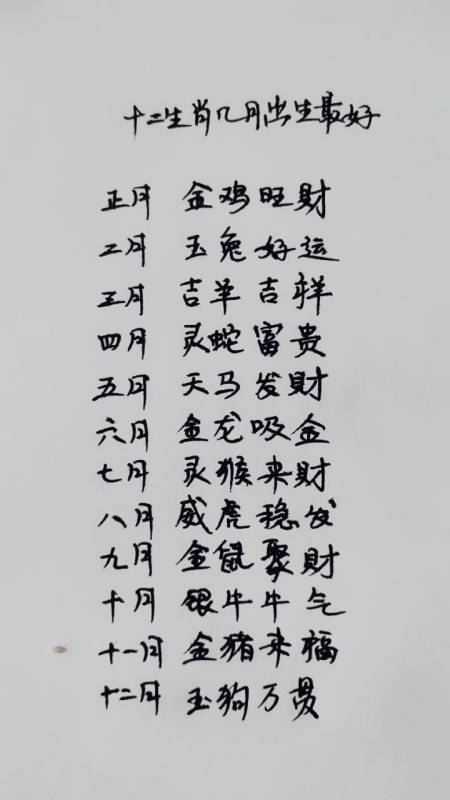 十二生肖几月出生最好
正月 金鸡旺财
二月 玉兔好运
三月 吉羊吉祥
四月 灵蛇富贵
五月 天马发财
六月 金龙吸金
七月 灵猴来财
八月 威虎稳发
九月 金鼠聚财
十月 银牛牛气
十一月 金猪来福
十二月 玉狗万贯